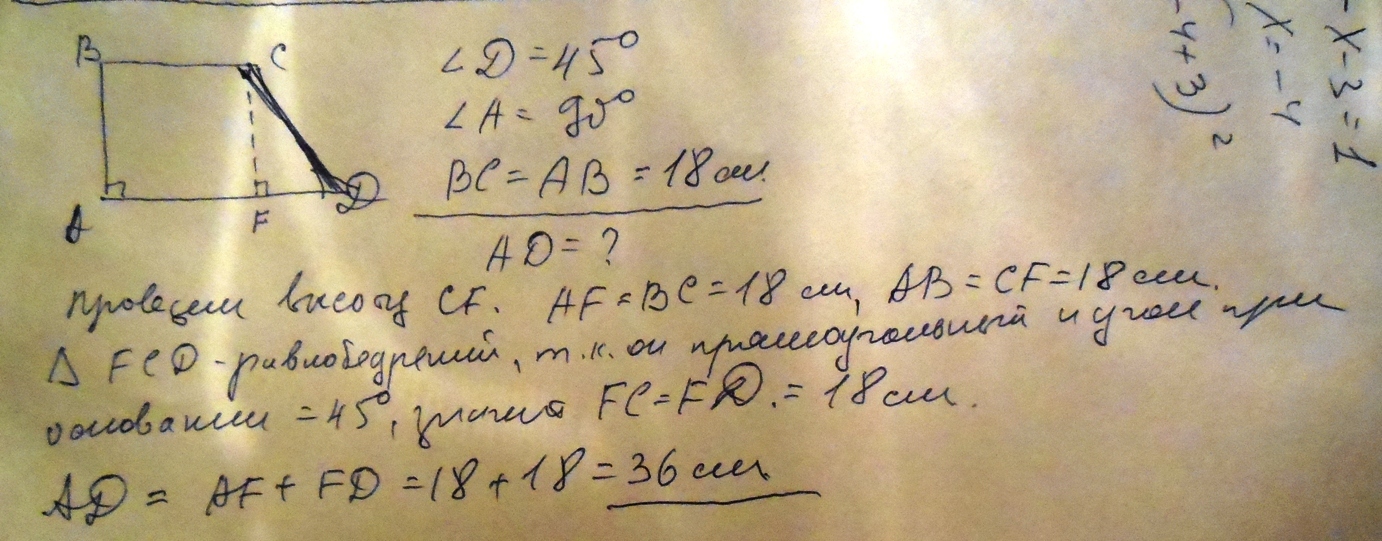 B C
A F D
∠D = 45°
∠A = 90°
BC = AB = 18 см.
AD = ?
Проведем высоту CF. AF = BC = 18 см, AB = CF = 18 см.
Δ FCD - равнобедренный, т.к. он прямоугольный и угол при
основании = 45°, значит FC = FD. = 18 см.
AD = AF + FD = 18 + 18 = 36 см
- x - 3 = 1
x = - 4
- 4 + 3)²